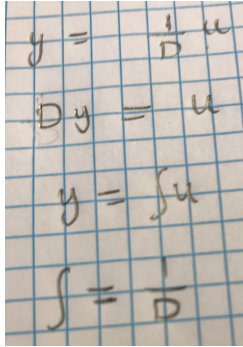 y = 1/D u
Dy = u
y = ∫u
∫ = 1/D